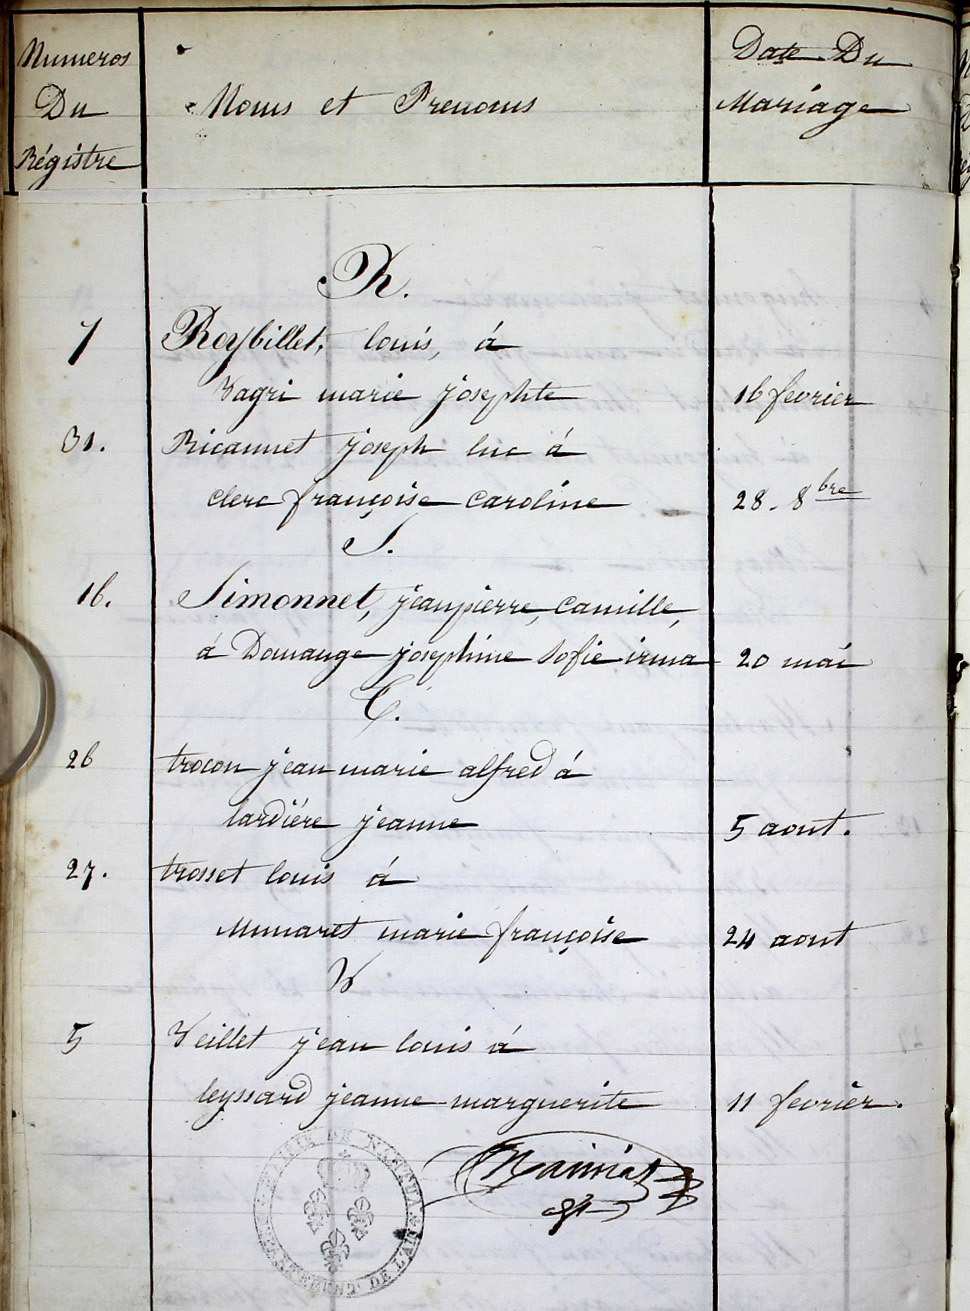 Numeros
Du
Régistre
Noms et Prenoms
Date Du
Mariage
R.
7
Reybillet, louis, á
Vagri marie josephte
16 fevrier
31.
Ricannet joseph luc á
clerc françoise caroline
28. 8bre
S.
16.
Simonnet, jeanpierre, camille,
á Domange josephine sofie irma
20 mai
T.
26
trocon jean marie alfred á
lardiére jeanne
5 aout.
27.
trosset louis á
Munaret marie françoise
24 aout
V
5
Veillet jean louis á
leyssard jeanne marguerite
11 fevrier.
MAIRIE DE NANTUA
DEPARTEMENT DE L'AIN